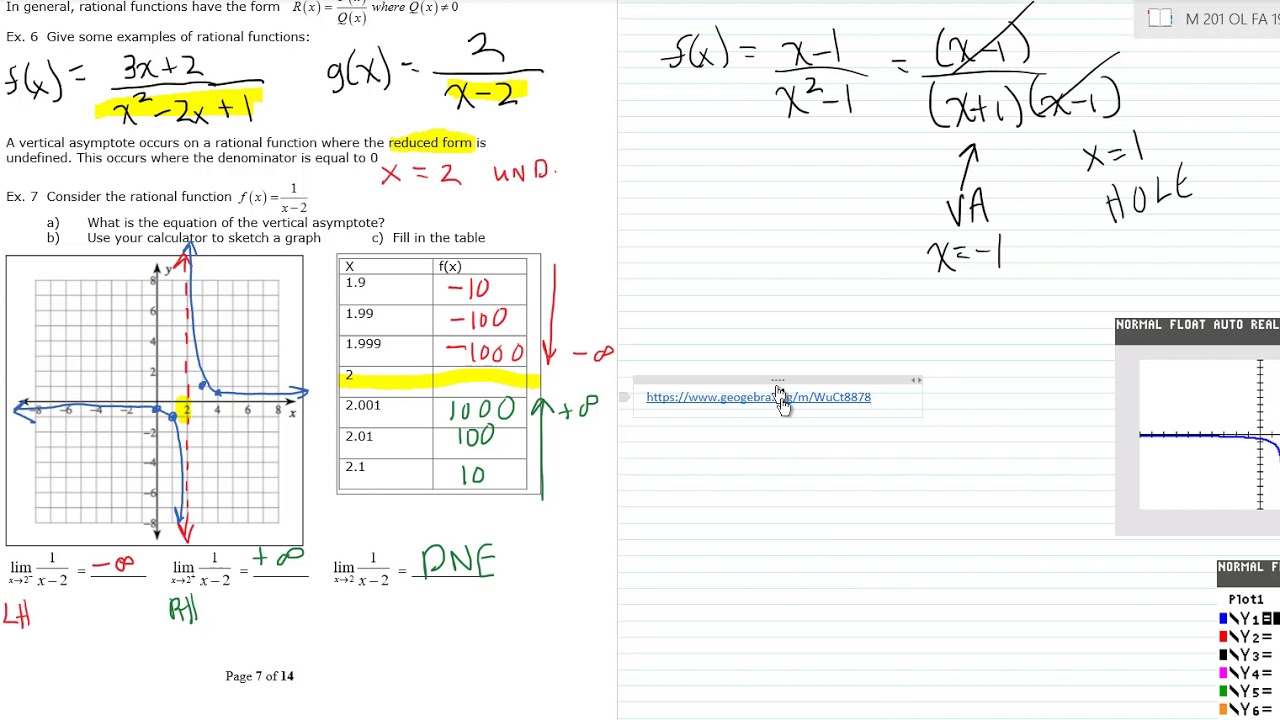 In general, rational functions have the form R(x) = / Q(x) where Q(x) ≠ 0
Ex. 6 Give some examples of rational functions:
f(x) = 3x+2 / x² - 2x + 1
g(x) = 2 / x - 2
A vertical asymptote occurs on a rational function where the reduced form is
undefined. This occurs where the denominator is equal to 0
x = 2 UND.
Ex. 7 Consider the rational function f(x) = 1 / x - 2
a) What is the equation of the vertical asymptote?
b) Use your calculator to sketch a graph c) Fill in the table
y
8
6
4
2
-8 -6 -4 -2 2 4 6 8 x
-2
-4
-6
-8
X f(x)
1.9 -10
1.99 -100
1.999 -1000
2
2.001 1000
2.01 100
2.1 10
- ∞
+ ∞
lim x→2⁻ 1 / x - 2 = - ∞
lim x→2⁺ 1 / x - 2 = + ∞
lim x→2 1 / x - 2 = DNE
LH
RH
Page 7 of 14
M 201 OL FA 19
f(x) = x - 1 / x² - 1 = (x-1) / (x+1)(x-1)
x = 1
HOLE
VA
x = -1
NORMAL FLOAT AUTO REAL
NORMAL F
Plot1
\Y1=
\Y2=
\Y3=
\Y4=
\Y5=
\Y6=